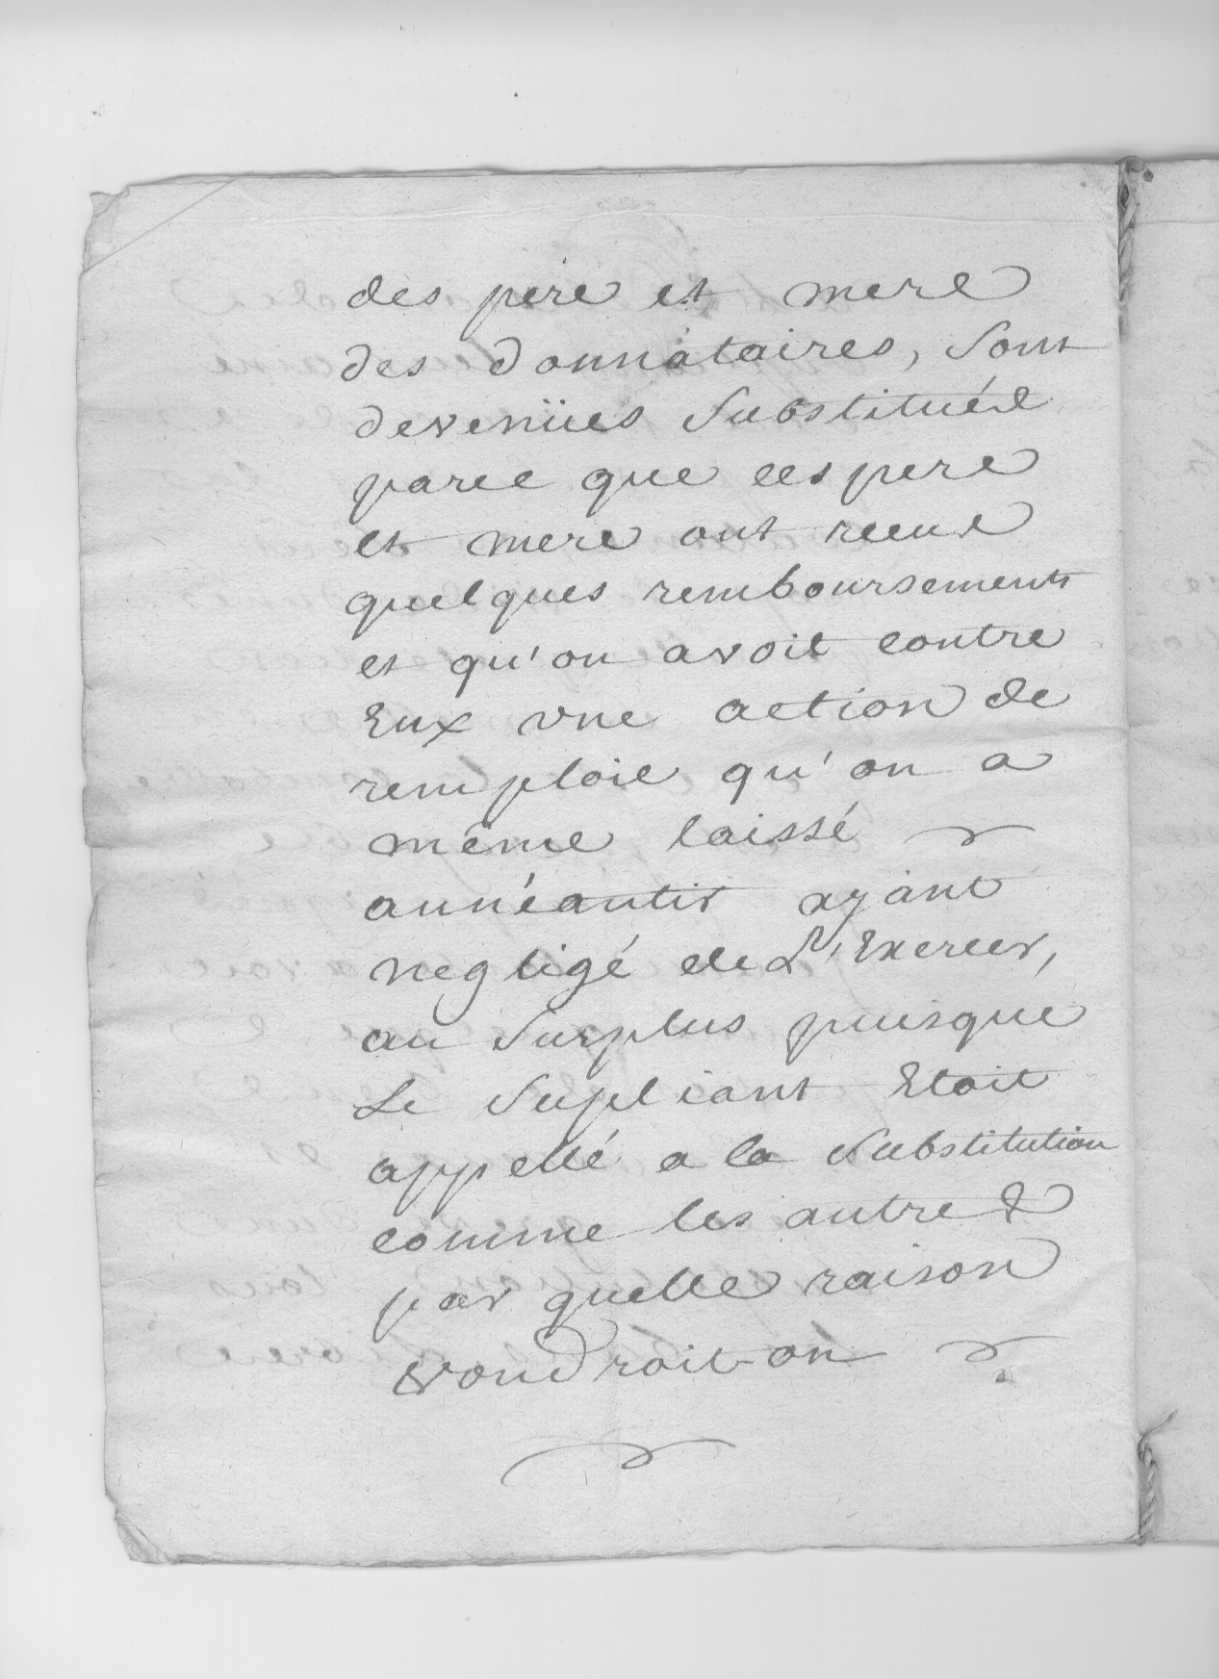 des pere et mere
des donnataires, sont
devenües substituées
parce que ces pere
et mere ont receus
quelques remboursements
et qu'on avoit contre
Eux une action de
remploie qu'on a
même laissé
annéantir ayant
negligé de L'Exercer,
au surplus puisque
Le supliant Etoit
appellé a la substitution
comme les autres
par quelle raison
voudroit-on